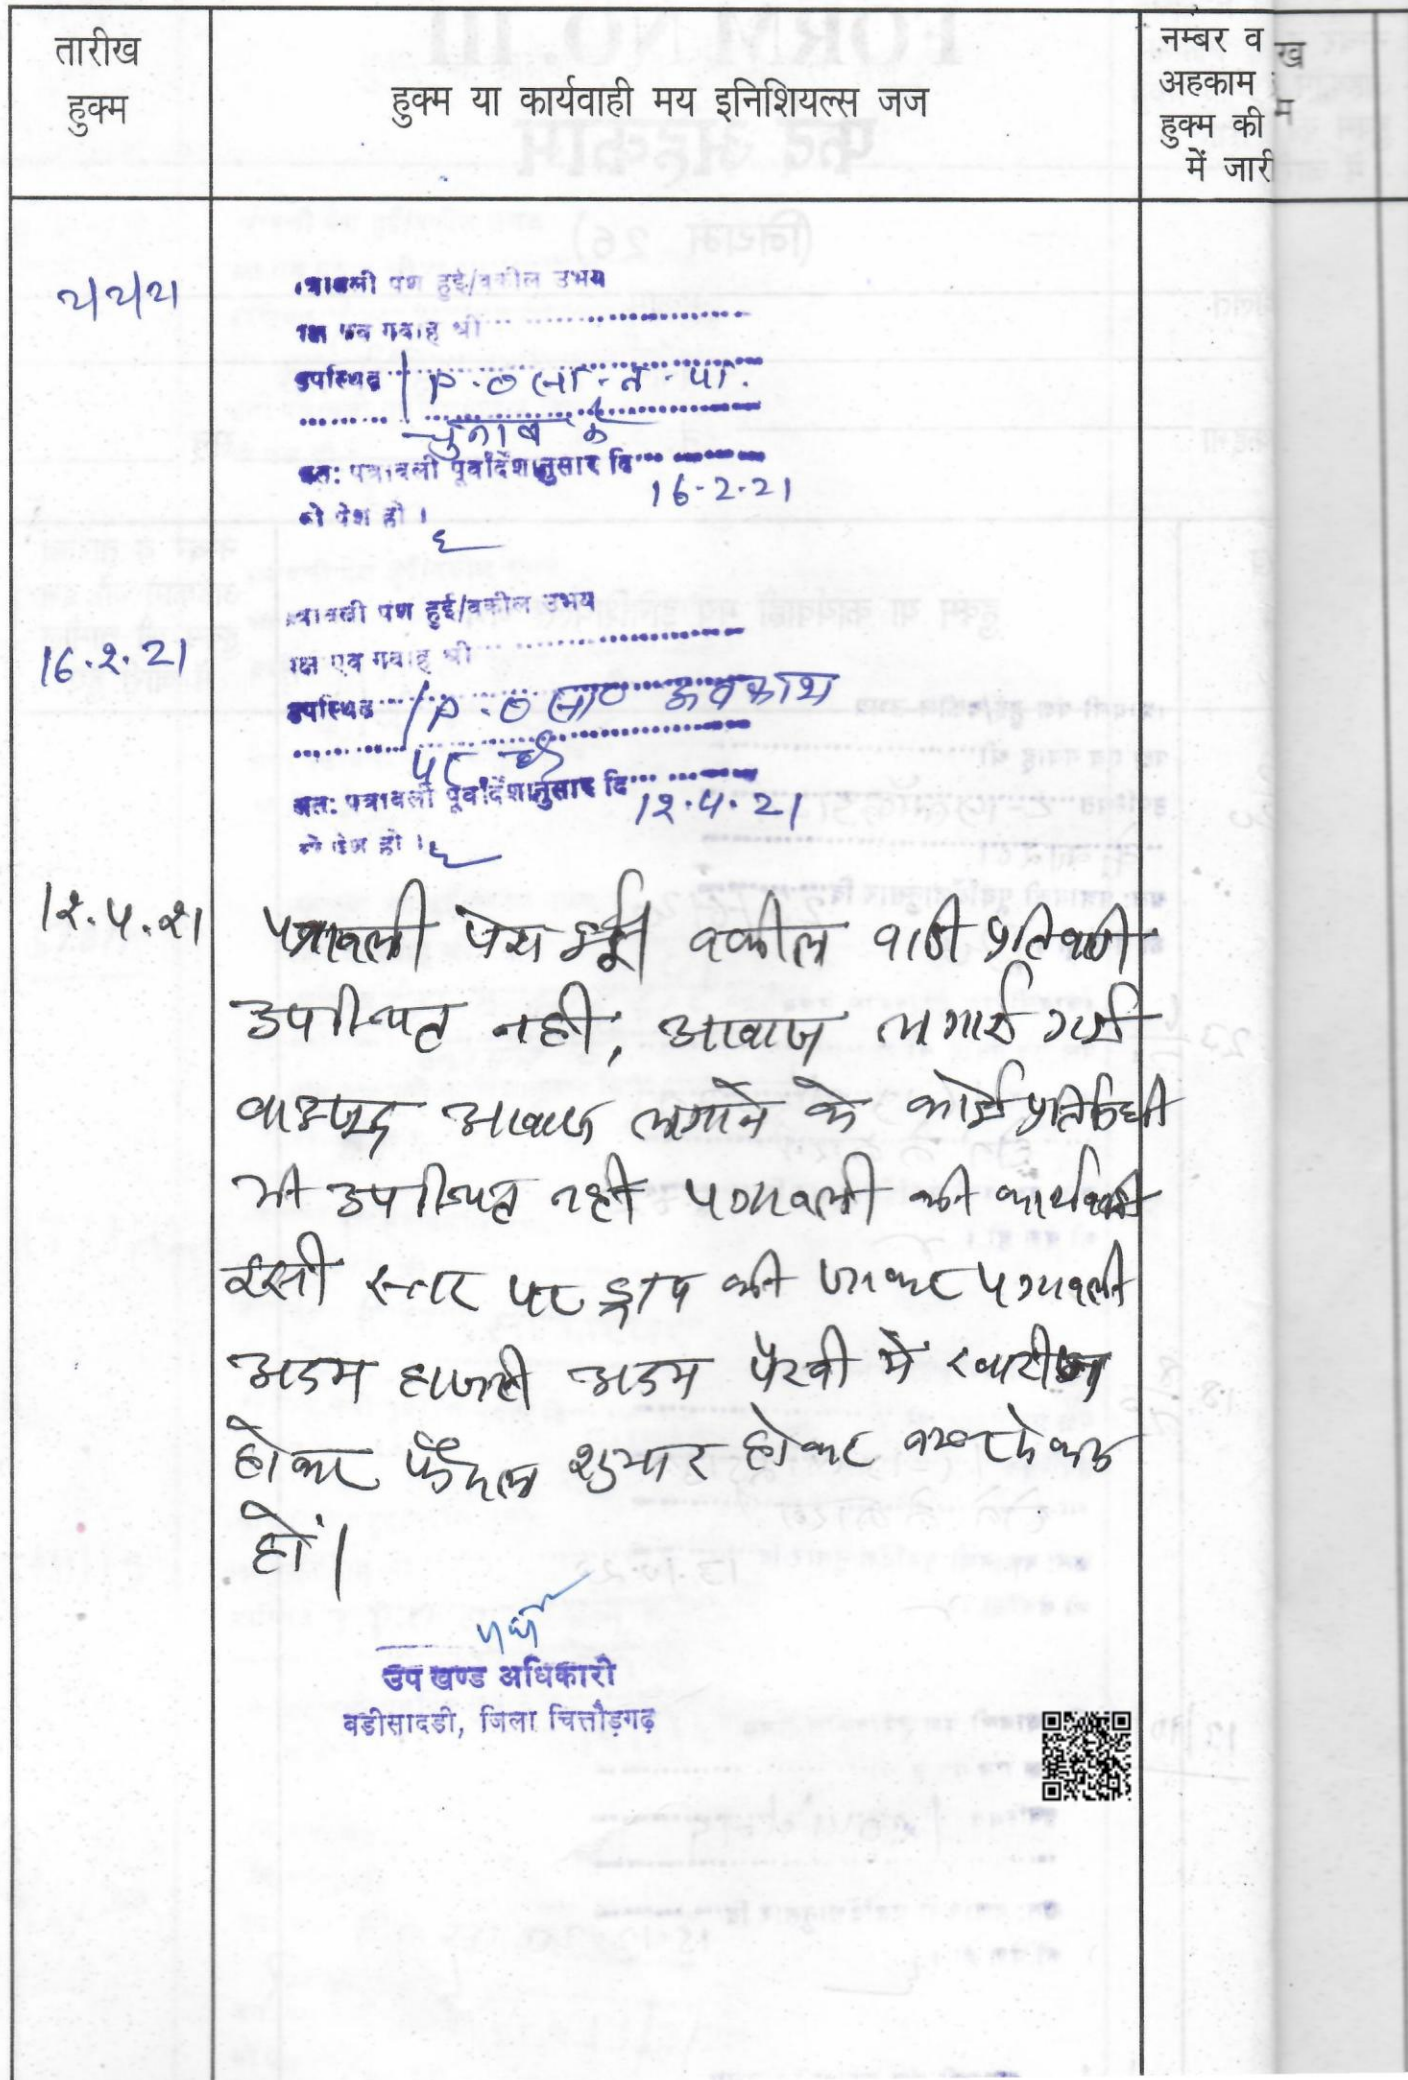 तारीख
हुक्म
हुक्म या कार्यवाही मय इनिशियल्स जज
नम्बर व
अहकाम
हुक्म की
में जारी
ख
म
पत्रावली पेश हुई/वकील उभय
पक्ष एवं गवाह श्री
उपस्थित P.O सा.
चुनाव के
अतः पत्रावली पूर्वादेशानुसार दि 16-2-21
को पेश हो।
16.2.21
पत्रावली पेश हुई/वकील उभय
पक्ष एवं गवाह श्री
उपस्थित P.O सा० अवकाश
पर है
अतः पत्रावली पूर्वादेशानुसार दि 12.4.21
को पेश हो।
12.4.21
पत्रावली पेश हुई। वकील वादी प्रतिवादी
उपस्थित नही, आवाज लगाई गई
बावजूद आवाज लगाने के कोई प्रतिनिधी
भी उपस्थित नही पत्रावली की कार्यवाही
इसी स्तर पर ड्राप की जाकर पत्रावली
अदम हाजरी अदम पैरवी में खारीज
होकर फैसल शुमार होकर
हों।
उप खण्ड अधिकारी
बडीसादडी, जिला चित्तौड़गढ़